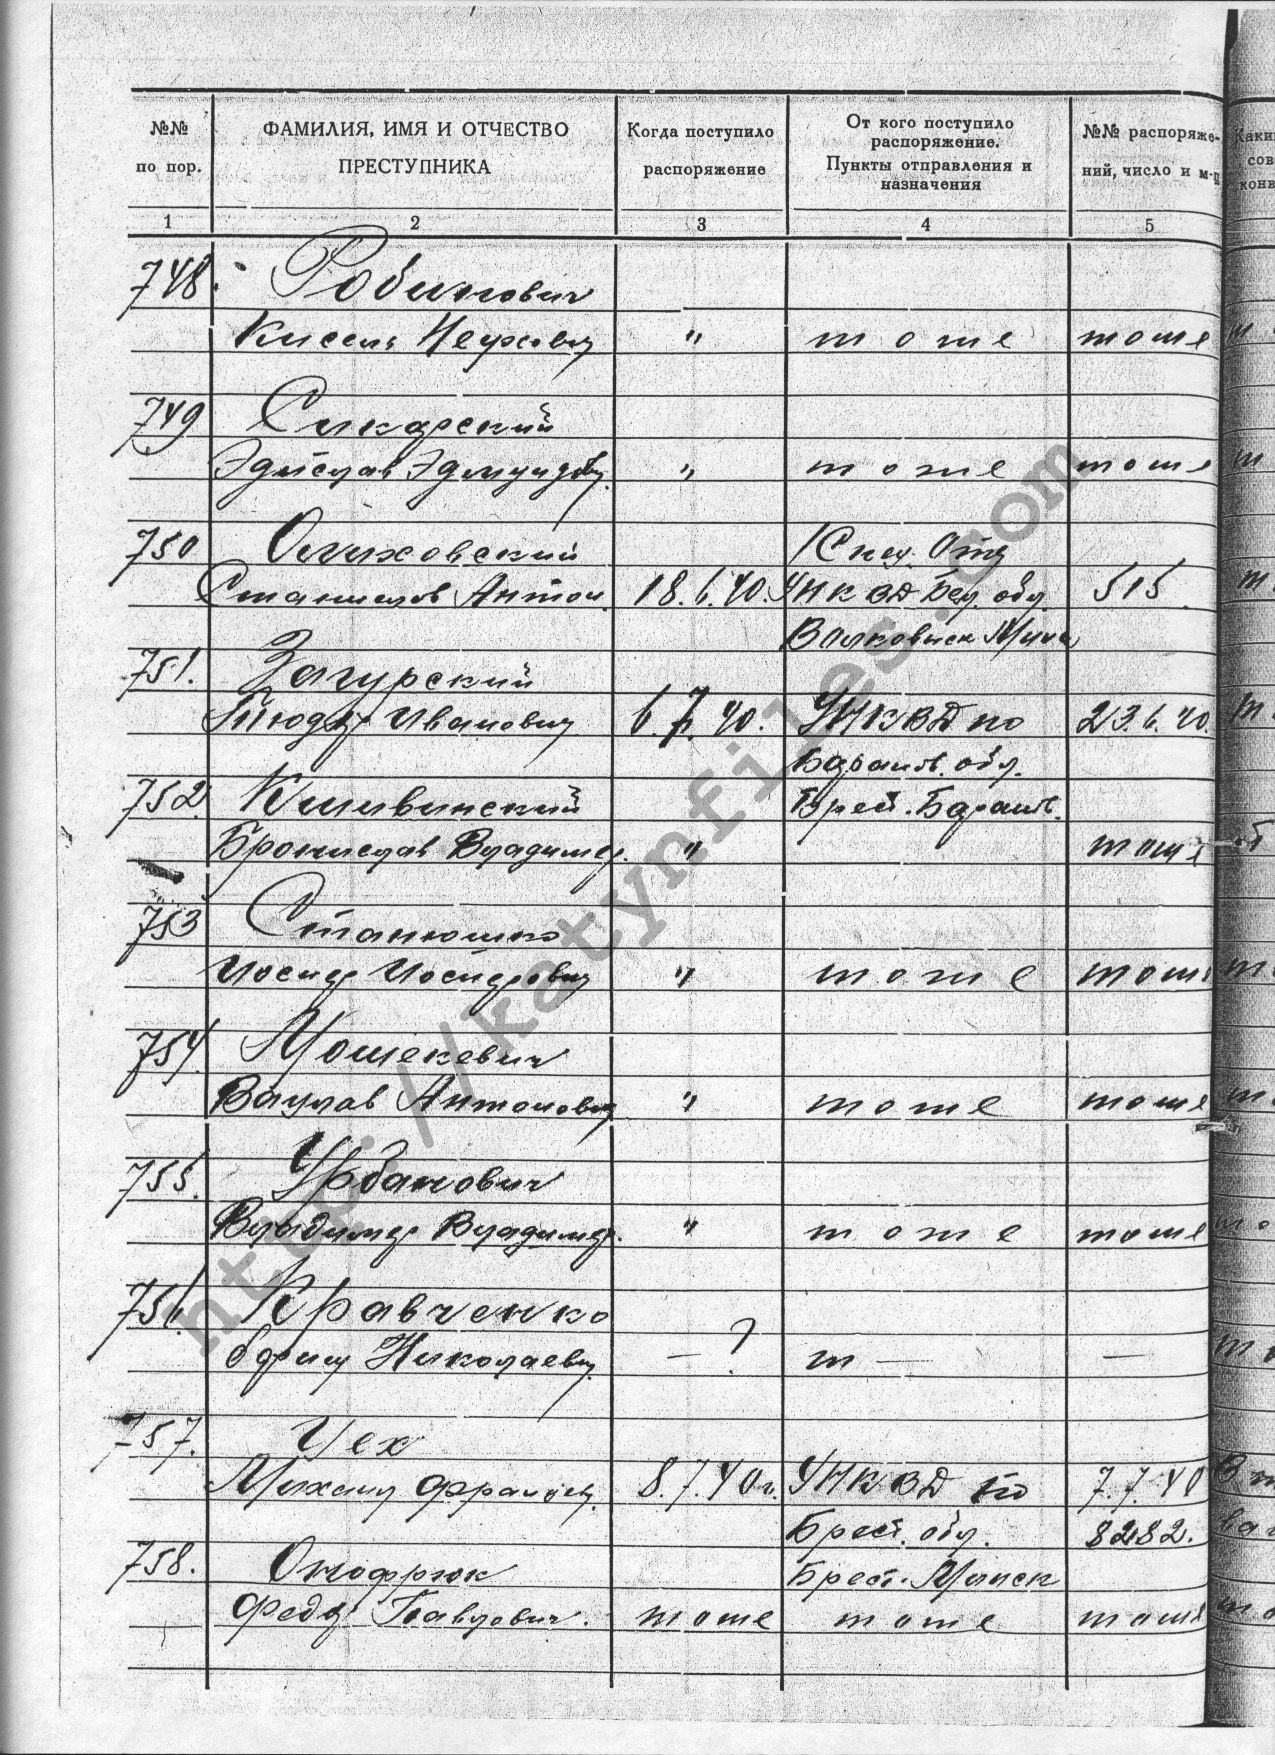 №№
по пор.
ФАМИЛИЯ, ИМЯ И ОТЧЕСТВО
ПРЕСТУПНИКА
Когда поступило
распоряжение
От кого поступило
распоряжение.
Пункты отправления и
назначения
№№ распоряже-
ний, число и м-ц
Каки
сов
конв
1 2 3 4 5
748. Рабинович
Кисель " тоже тоже
749 Сикорский
Эдислав Эдмундов. " тоже тоже
750 Ольховский /Спец. Отд
Станислав Антон. 18.6.40. УНКВД Бел. обл. 515.
Волковыск Минск
751. Загурский
Иванович 6.7.40. УНКВД по 23.6.40.
Баранов. обл.
752. Брест. Баранов.
Бронислав Владимир. " тоже
753 Станюшко
Иосиф Иосифович " тоже тоже
754. Мошекевич
Вацлав Антонович " тоже тоже
755. Урбанович
Владимир Владимир. " тоже тоже
756. Кравченко
Николаевич — ? т — —
757. Чех
Михаил Францев. 8.7.40г. УНКВД по 7.7.40
Брест. обл. 8282.
758. Онофрюк Брест. Минск
Федор Павлович. тоже тоже тоже
http://katynfiles.com